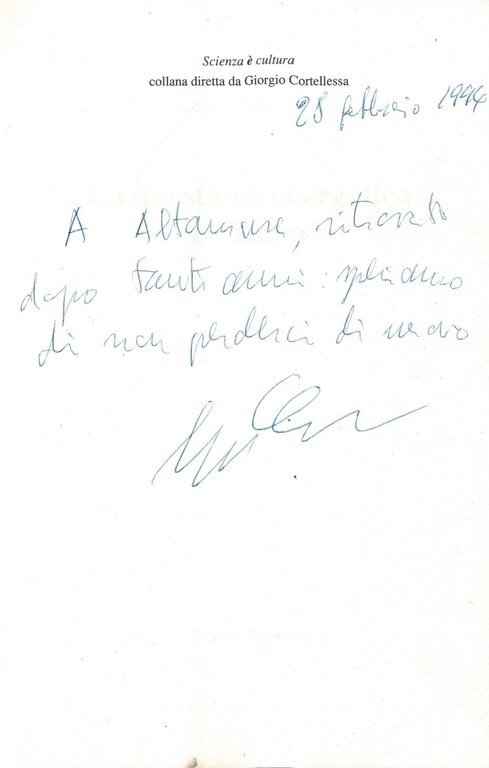 Scienza è cultura
collana diretta da Giorgio Cortellessa
28 febbraio 1994
A Altamura, ritrovato
dopo tanti anni: speriamo
di non perderci di nuovo
La questione energetica